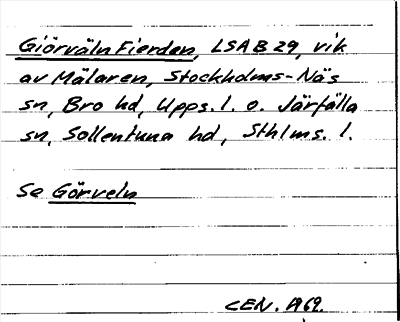 Giörväln Fierden, LSA B 29, vik
av Mälaren, Stockholms-Näs
sn, Bro hd, Upps. l. o. Järfälla
sn, Sollentuna hd, Sthlms. l.
Se Görveln
CEN. A 69.